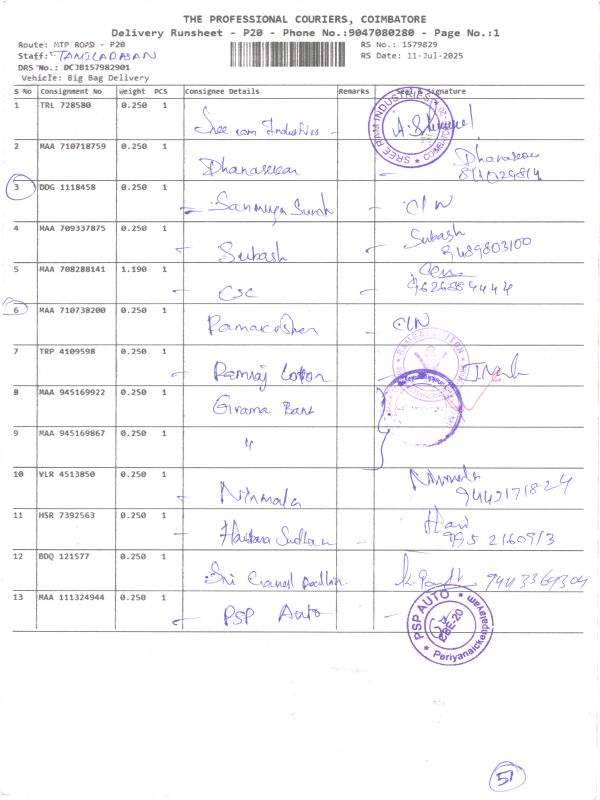 THE PROFESSIONAL COURIERS, COIMBATORE
Delivery Runsheet - P20 - Phone No.:9047080280 - Page No.:1
Route: MTP ROAD - P20 RS No.: 1579829
Staff: RS Date: 11-Jul-2025
DRS No.: DCJB157982901
Vehicle: Big Bag Delivery
S No Consignment No Weight PCS Consignee Details Remarks Seal & Signature
1 TRL 728580 0.250 1 Sree ram Industries
SREE RAM INDUSTRIES
2 MAA 710718759 0.250 1 Dhanasekar Dhanasekar
3 DDG 1118458 0.250 1 Sanmuga Surah C/N
4 MAA 709337875 0.250 1 Subash Subash
9489803100
5 MAA 708288141 1.190 1 CSC
9626884444
6 MAA 710738200 0.250 1 C/N
7 TRP 4109598 0.250 1 Ramraj Cotton
RAMRAJ COTTON
8 MAA 945169922 0.250 1 Grama Bank
9 MAA 945169867 0.250 1 "
10 VLR 4513850 0.250 1 Nirmala Nirmala
9442171824
11 HSR 7392563 0.250 1 Hari
12 BDQ 121577 0.250 1 Sri
13 MAA 111324944 0.250 1 PSP Auto
PSP AUTO
CBE-20
Periyanaickenpalayam
51